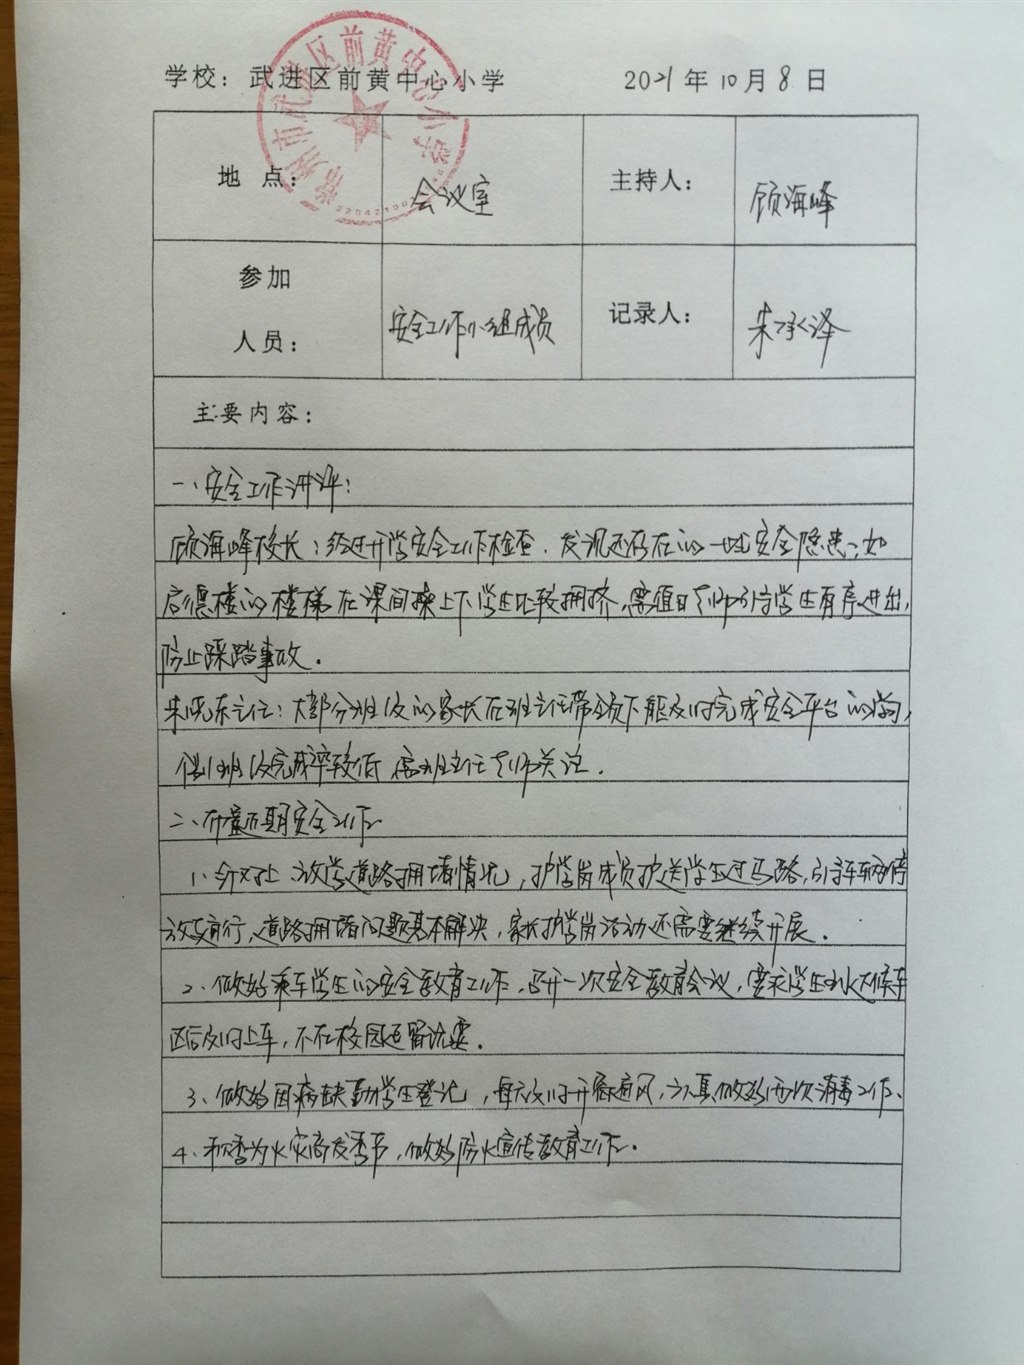 学校：武进区前黄中心小学 2021年10月8日
常州市武进区前黄中心小学
地 点： 会议室 主持人： 顾海峰
参加
人员： 安全工作小组成员 记录人： 朱承泽
主要内容：
一、安全工作讲评：
顾海峰校长：经过开学安全工作检查，发现还存在的一些安全隐患：如
启德楼的楼梯在课间操上下学生比较拥挤，需值日老师引导学生有序进出，
防止踩踏事故．
朱 东主任：大部分班级的家长在班主任带领下能及时完成安全平台的学习，
个别班级完成率较低，需班主任老师关注．
二、布置近期安全工作
1、针对上放学道路拥堵情况，护学岗成员护送学生过马路，引导车辆停
放与前行，道路拥堵问题基本解决，家长护学岗活动还需要继续开展．
2、做好乘车学生的安全教育工作，召开一次安全教育会议，要求学生 候车
区后及时上车，不在校园逗留玩耍．
3、做好因病缺勤学生登记，每天及时开窗通风，认真做好两次消毒工作．
4、秋季为火灾高发季节，做好防火宣传教育工作．